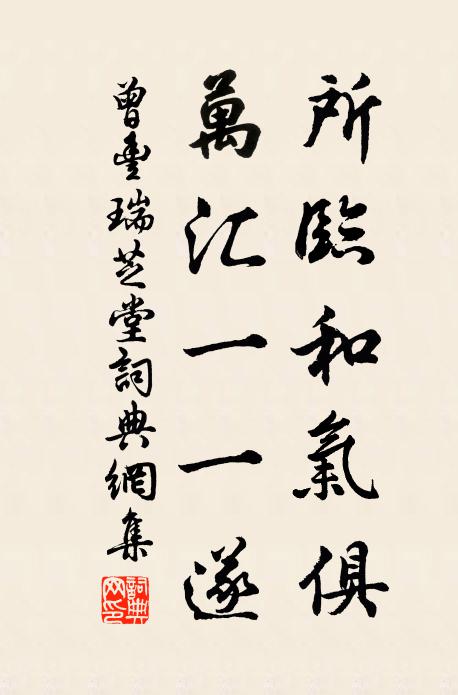 所臨和氣俱
萬汇一一遂
曾豐瑞芝堂詞典網集
詞典网印